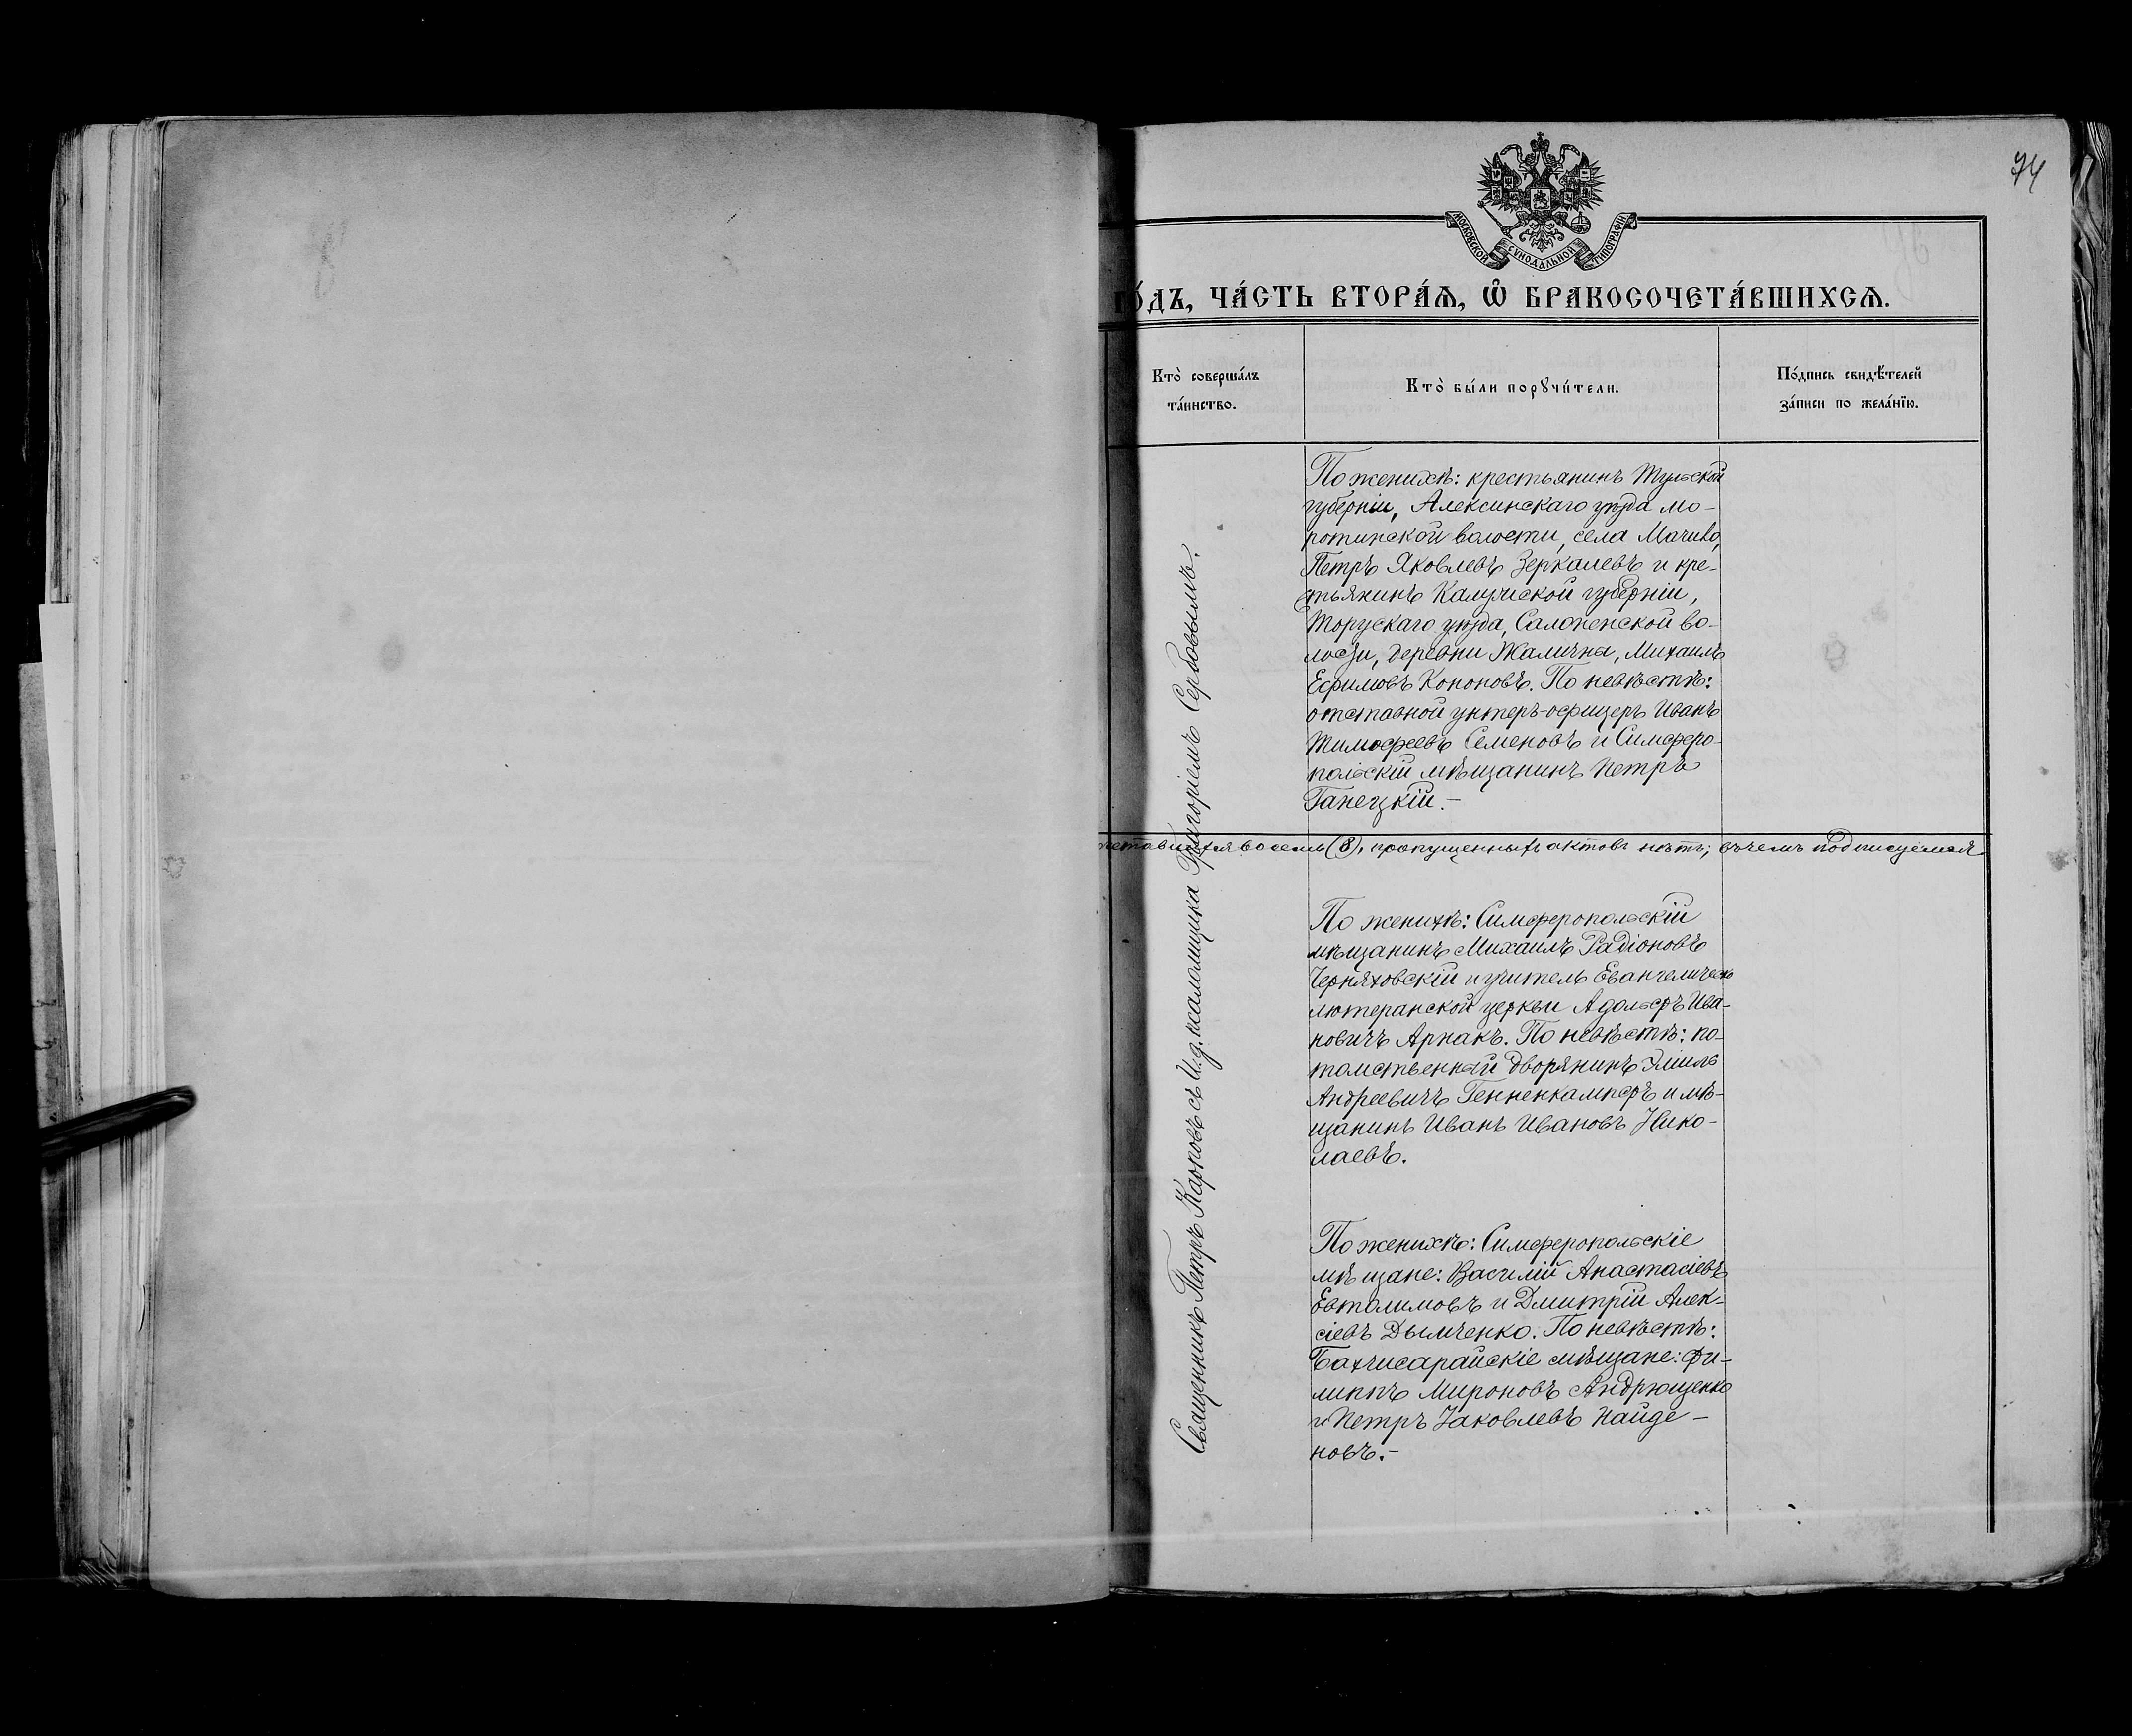 74
МОСКОВСКОЙ СѴНОДАЛЬНОЙ ТИПОГРАФІИ
го́дъ, ча́сть втора́ѧ, ѡ҆ бракосочета́вшихсѧ.
Кто̀ соверша́лъ
та́инство.
Кто̀ бы́ли порꙋчи́тели.
По́дпись свидѣ́телей
за́писи по жела́нїю.
Священникъ Петръ Карповъ съ И.д. псаломщика Григоріемъ Сербовымъ.
По женихѣ: крестьянинъ Тульской
губерніи, Алексинскаго уѣзда Мо-
ротинской волости, села
Петръ Яковлевъ Зеркалевъ и кре-
стьянинъ Калужской губерніи,
Торускаго уѣзда, Салопенской во-
лости, деревни Жалична, Михаилъ
Ефимовъ Кононовъ. По невѣстѣ:
отставной унтеръ-офицеръ Иванъ
Тимофеевъ Семеновъ и Симферо-
польскій мѣщанинъ Петръ
Ганецкій.-
восемь (8), пропущенныхъ актовъ нѣтъ; въ чемъ подписуемся
По женихѣ: Симферопольскій
мѣщанинъ Михаилъ Радіоновъ
Черняховскій и учитель Евангелическо
лютеранской церкви Адольфъ Ива-
новичъ Арнакъ. По невѣстѣ: по-
томственный дворянинъ Эмиль
Андреевичъ Генненкампфъ и мѣ-
щанинъ Иванъ Ивановъ Нико-
лаевъ.
По женихѣ: Симферопольскіе
мѣщане: Василій Анастасіевъ
Евталимовъ и Дмитрій Алек-
сіевъ Дымченко. По невѣстѣ:
Бахчисарайскіе мѣщане: Фи-
липпъ Мироновъ Андрющенко
и Петръ Іаковлевъ Найде-
новъ.-